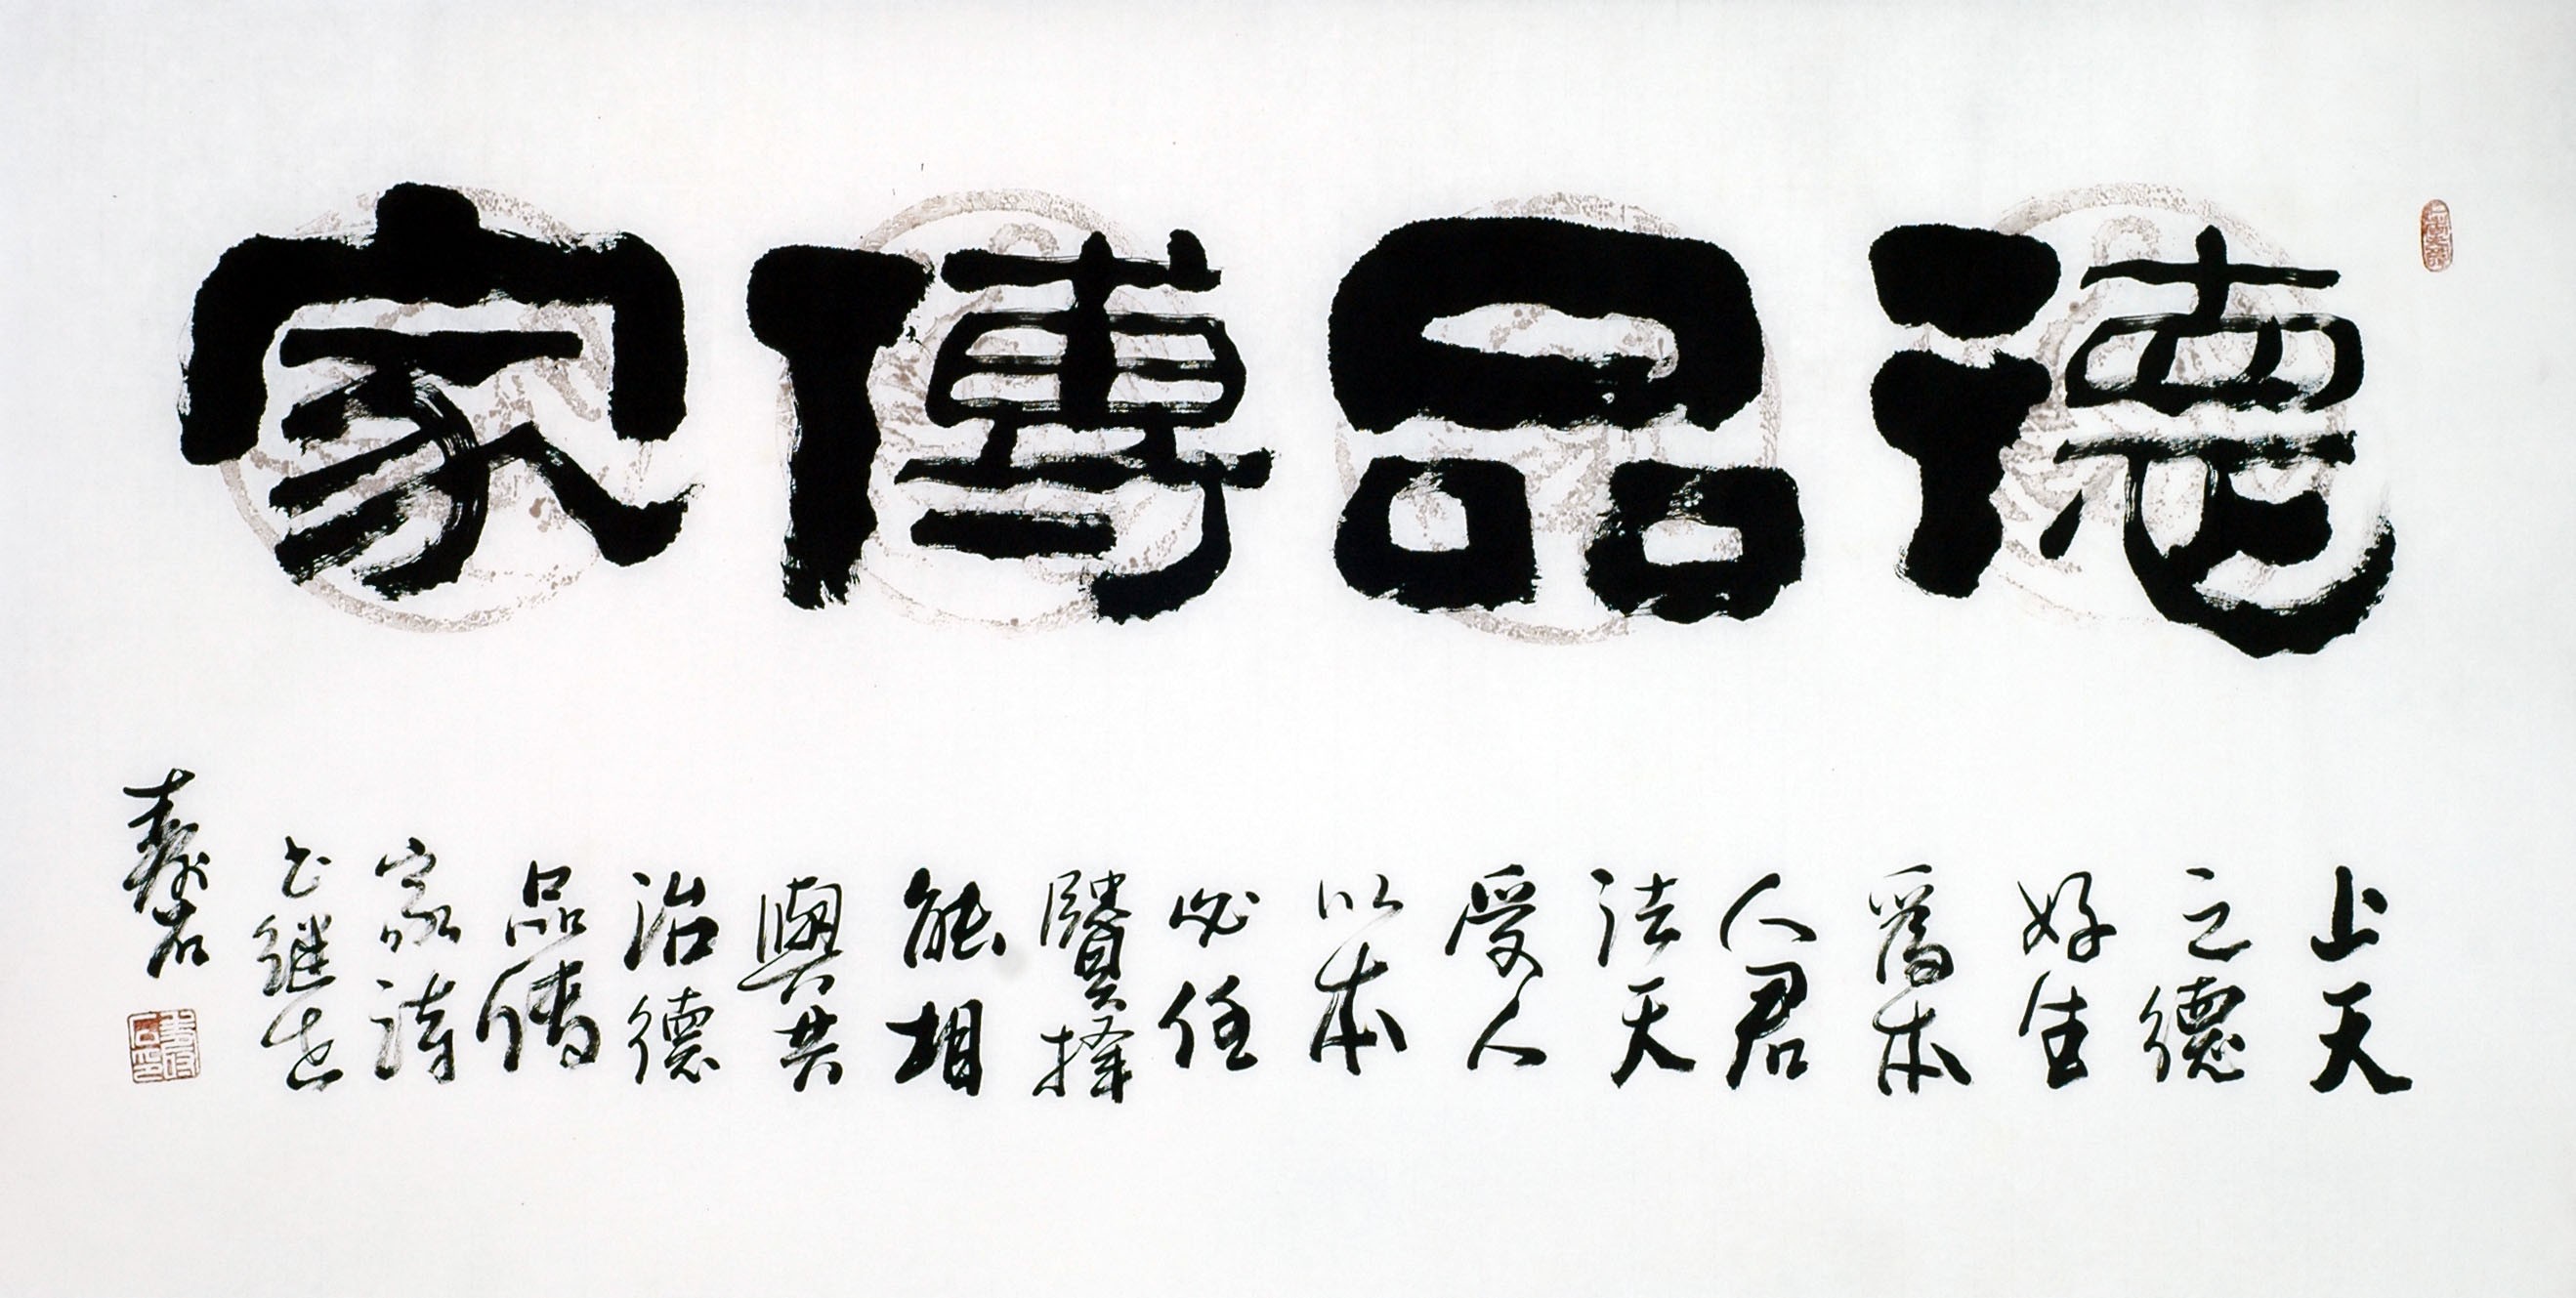 德品傳家
上天
之德
好生
爲本
人君
法天
受人
以本
必任
賢擇
能相
與共
治德
品傳
家詩
書继世
壽石